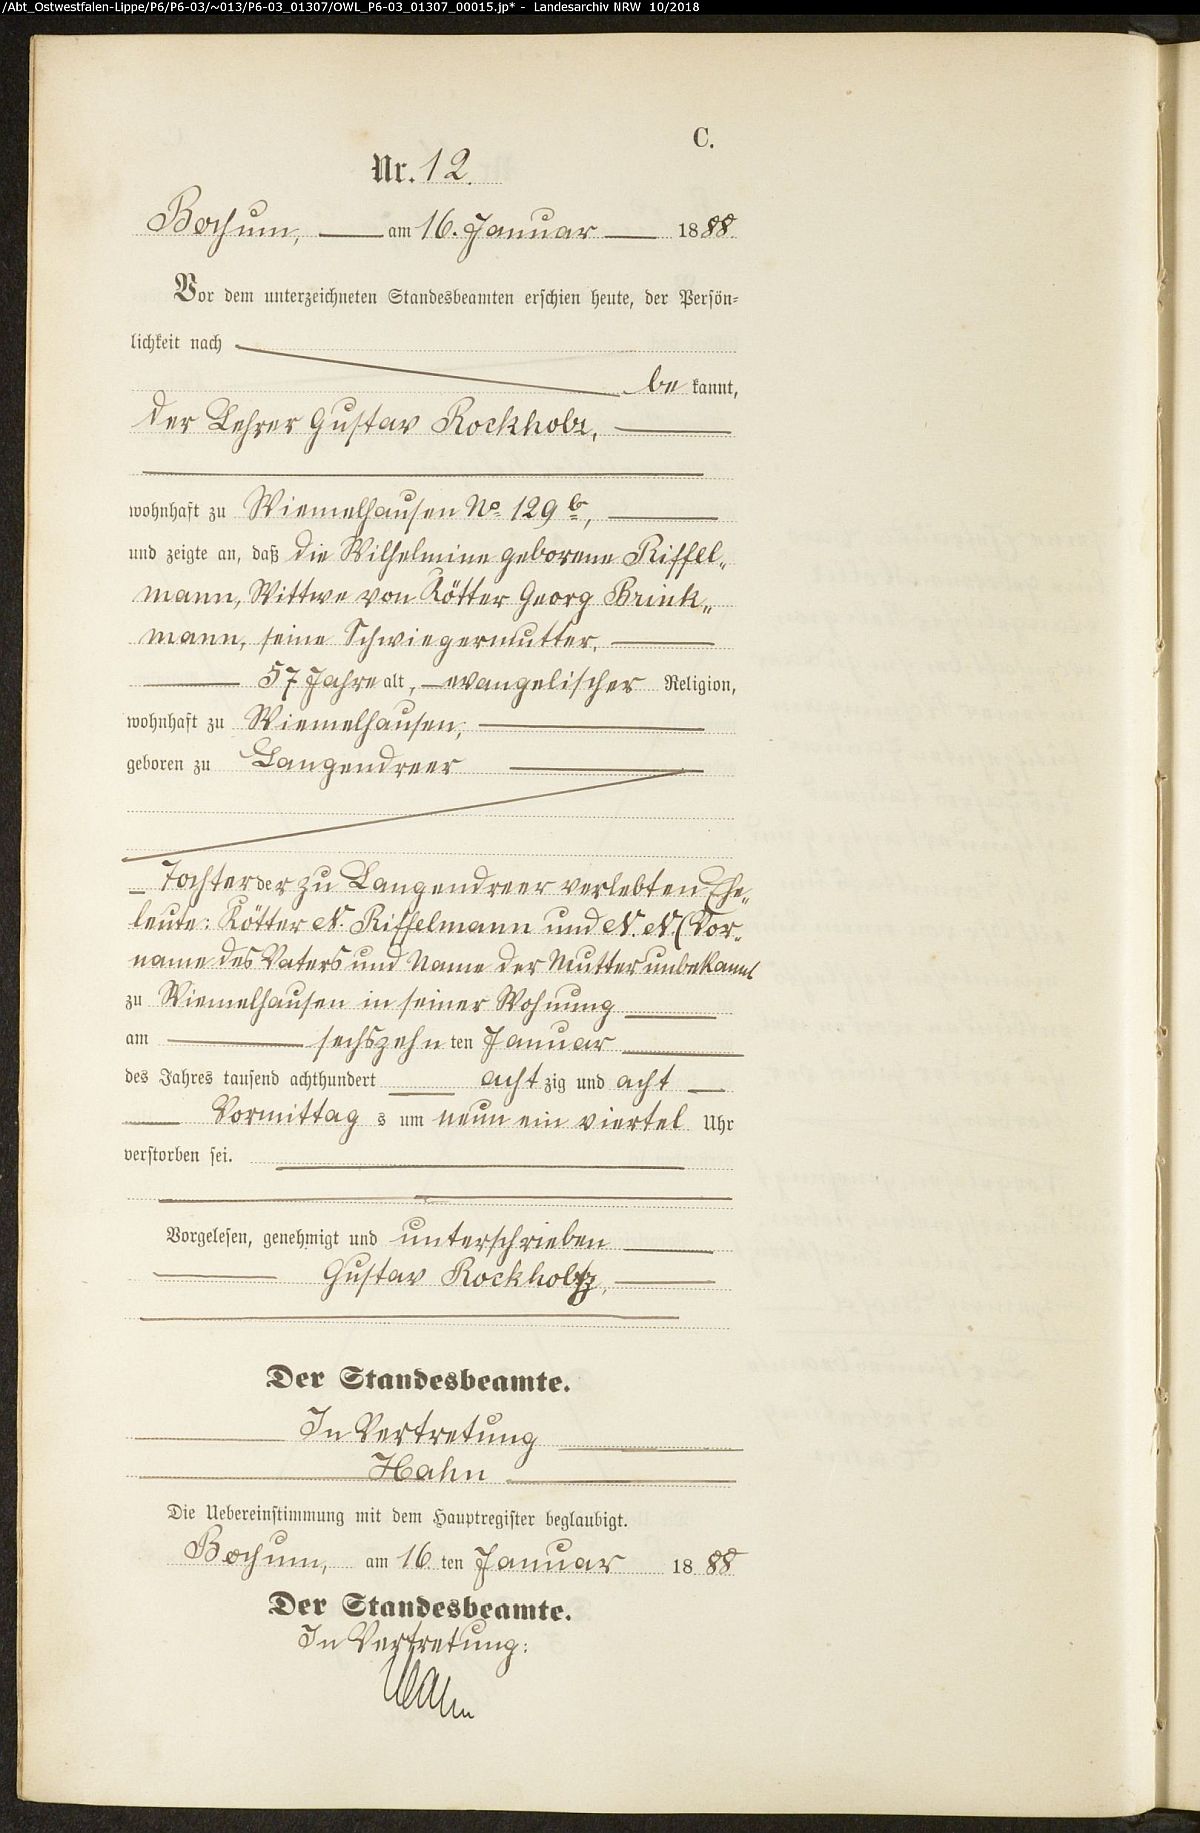 /Abt_Ostwestfalen-Lippe/P6/P6-03/~013/P6-03_01307/OWL_P6-03_01307_00015.jp* - Landesarchiv NRW 10/2018
C.
Nr. 12.
Bochum, am 16. Januar 1888
Vor dem unterzeichneten Standesbeamten erschien heute, der Persön-
lichkeit nach
be kannt,
der Lehrer Gustav Rockholz,
wohnhaft zu Wiemelhausen No. 129 b,
und zeigte an, daß die Wilhelmine geborene Riffel-
mann, Wittwe von Kötter Georg Brink-
mann, seine Schwiegermutter,
57 Jahre alt, evangelischer Religion,
wohnhaft zu Wiemelhausen,
geboren zu Langendreer
Tochter der zu Langendreer verlebten Ehe-
leute: Kötter N. Riffelmann und N. N. (Vor-
name des Vaters und Name der Mutter unbekannt
zu Wiemelhausen in seiner Wohnung
am sechszehn ten Januar
des Jahres tausend achthundert acht zig und acht
Vormittag s um neun ein viertel Uhr
verstorben sei.
Vorgelesen, genehmigt und unterschrieben
Gustav Rockholtz,
Der Standesbeamte.
In Vertretung
Hahn
Die Uebereinstimmung mit dem Hauptregister beglaubigt.
Bochum, am 16 ten Januar 1888
Der Standesbeamte.
In Vertretung:
Hahn